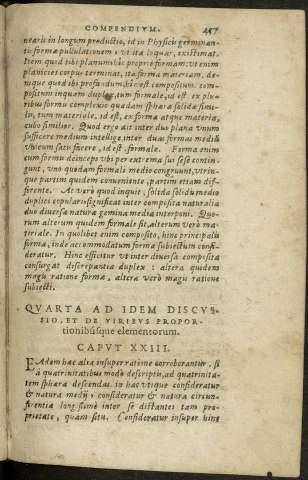 COMPENDIVM. 447
nearis in longum productio, id in Physicis germinan-
tis formæ pullulationem, vt ita loquar, existimat.
Item quod ibi planum, hic proprie formam: vt enim
planicies corpus terminat, ita forma materiam. de-
nique quod ibi profundum, hic est compositum. com-
positum inquam duplex, tum formale, id est ex plu-
ribus formis complexio quadam sphæræ solidæ simi-
le, tum materiale, id est, ex forma atque materia,
cubo similius. Quod ergo ait inter duo plana vnum
sufficere medium intellige inter duas formas mediū
vnicum satis facere, id est formale. Forma enim
cum formis deinceps vbi per extrema sui sese contin-
gunt, vno quodam formali medio congruunt, vtrin-
que partim quidem conueniente, partim etiam dif-
ferente. At verò quod inquit, solida solidis medio
duplici copulari: significat inter composita naturalia
duo diuersæ naturæ gemina media interponi. Quo-
rum alterum quidem formale sit, alterum verò ma-
teriale. In quolibet enim composito, hinc principalis
forma, inde accommodatum formæ subiectum consi-
deratur. Hinc efficitur vt inter diuersa composita
consurgat discrepantia duplex: altera quidem
magis ratione formæ, altera verò magis ratione
subiecti.
QVARTA AD IDEM DISCVS-
SIO, ET DE VIRIBVS PROPOR-
tionibúsque elementorum.
CAPVT XXIII.
EAdem hac alia insuper ratione corroborantur, si
à quatrinitatibus modò descriptis, ad quatrinita-
tem sphæræ descendas. in hac vtique consideratur
& natura medij, consideratur & natura circun-
ferentiæ longissimè inter se distantes tam pro-
prietate, quàm situ. Consideratur insuper hinc